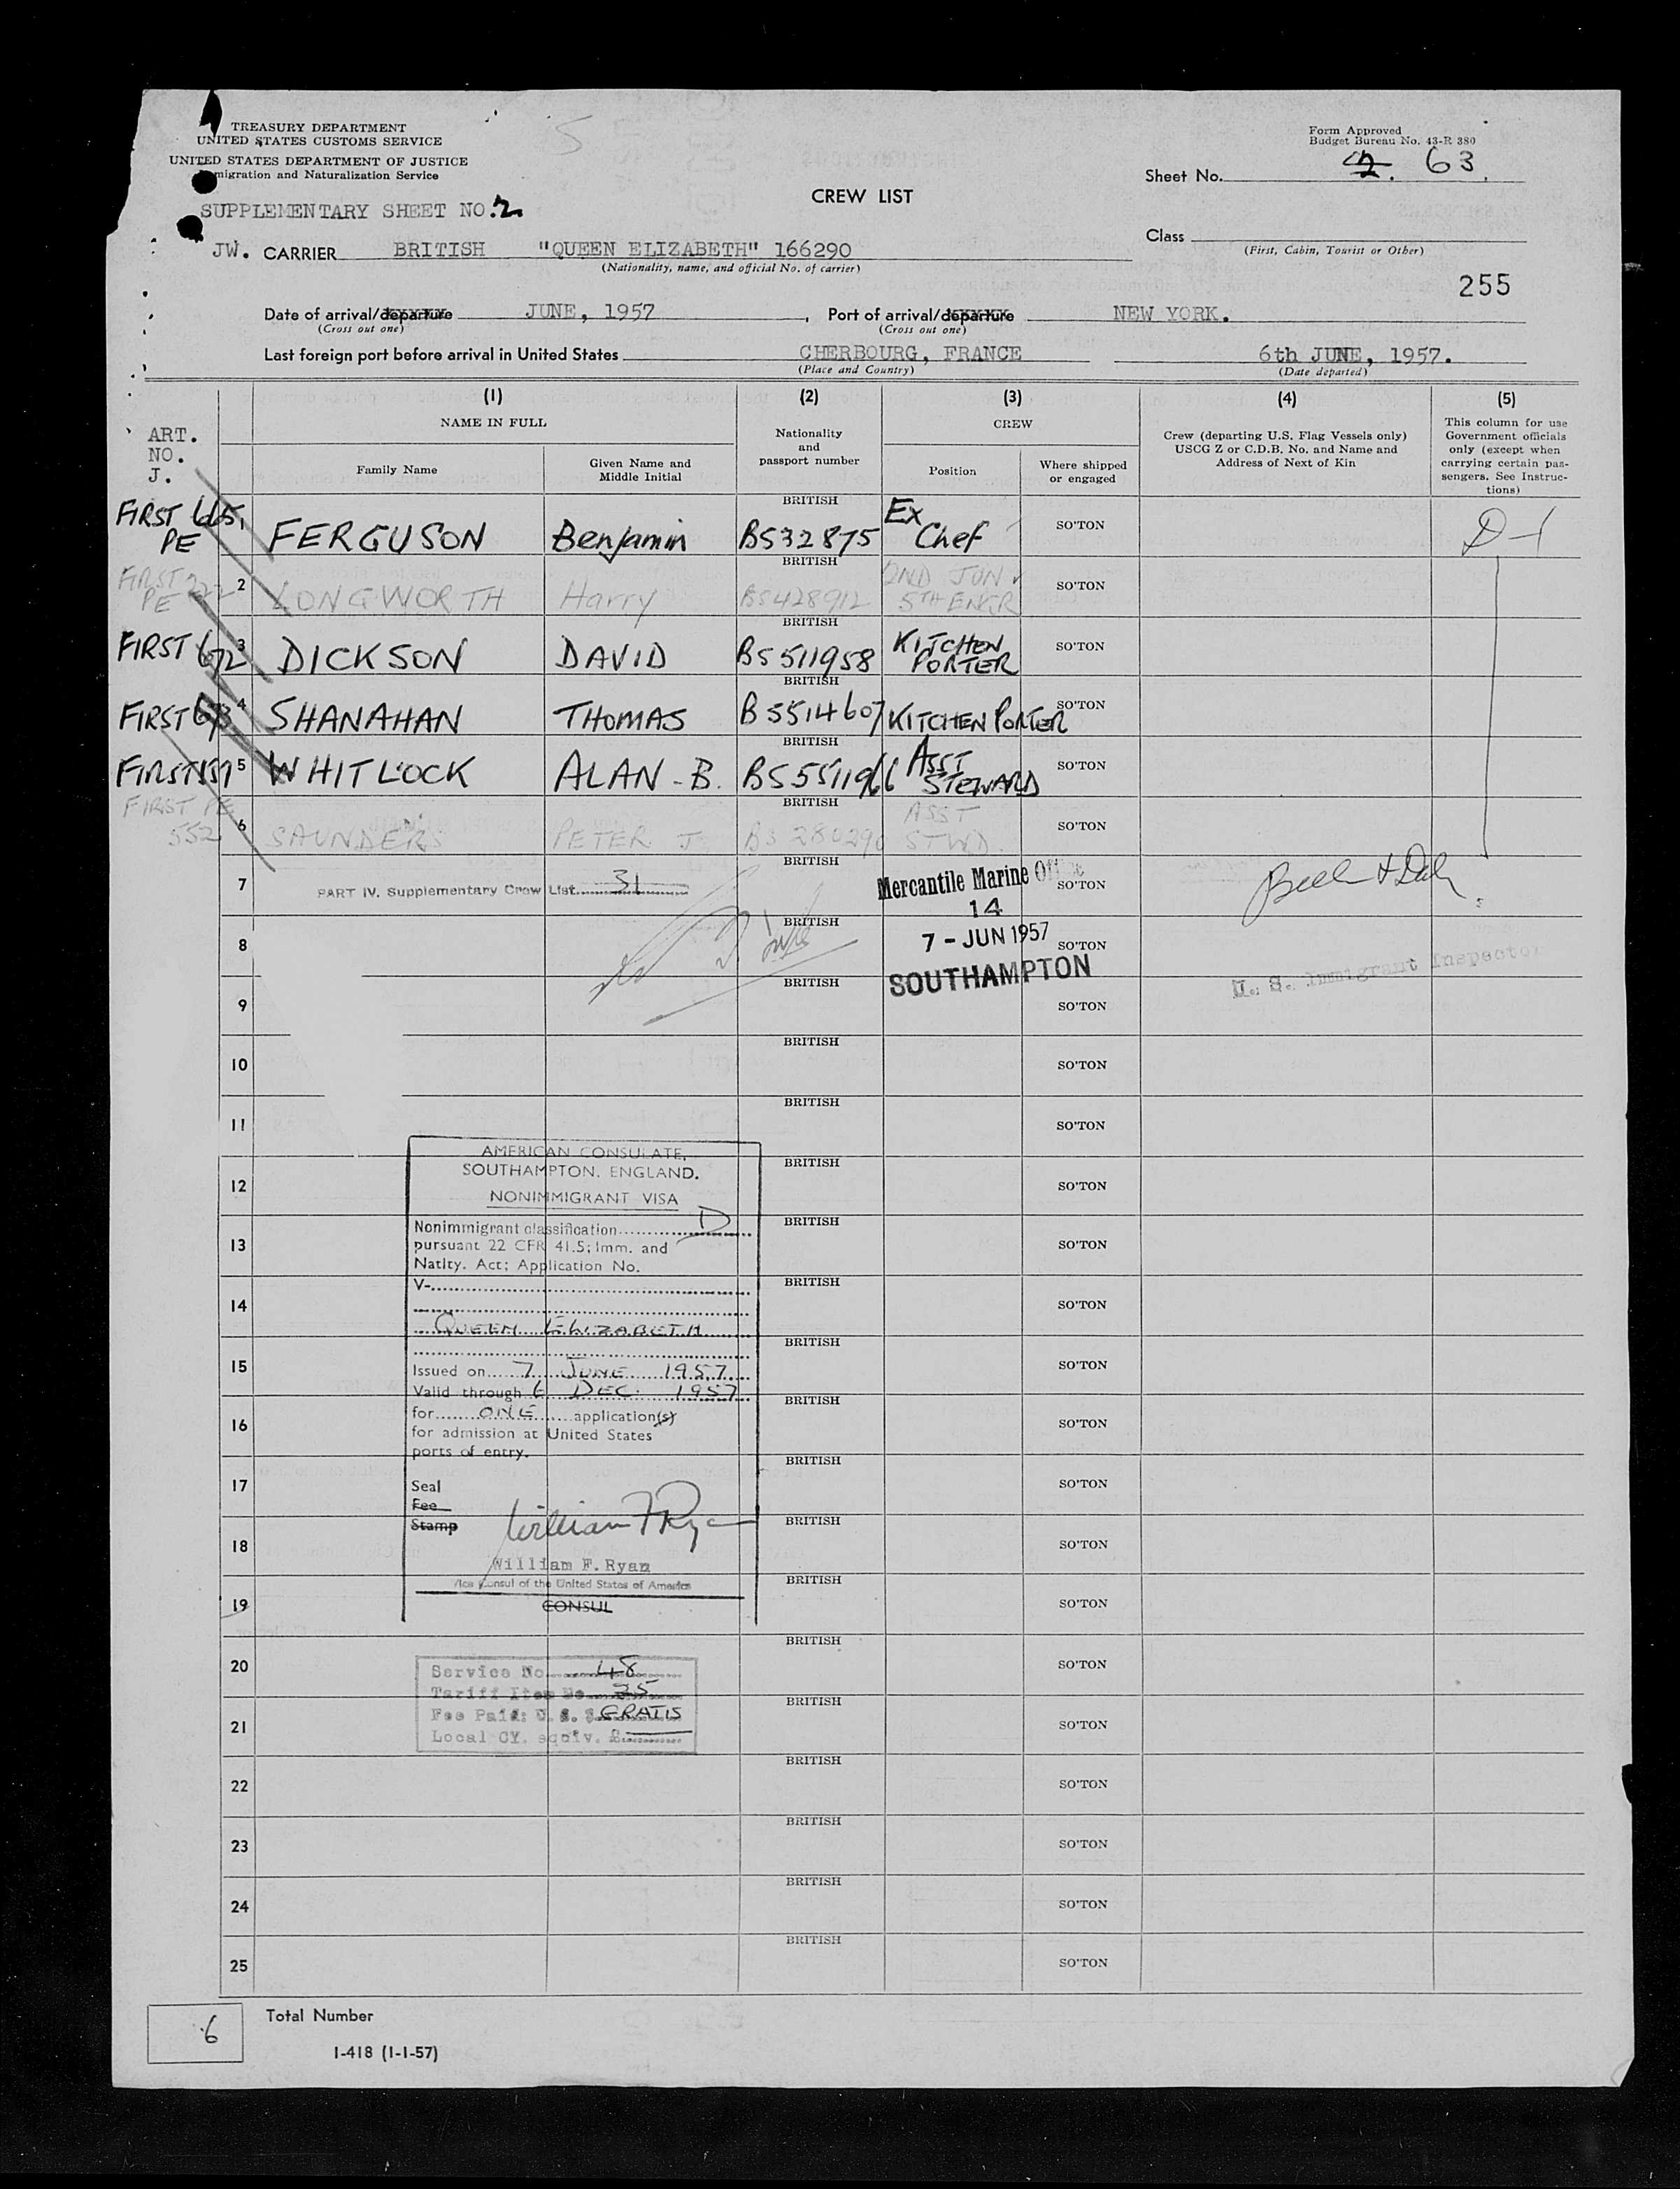 TREASURY DEPARTMENT
UNITED STATES CUSTOMS SERVICE
UNITED STATES DEPARTMENT OF JUSTICE
migration and Naturalization Service
Form Approved
Budget Bureau No. 43-R 380
Sheet No. 2. 63.
CREW LIST
SUPPLEMENTARY SHEET NO. 2.
Class
(First, Cabin, Tourist or Other)
JW. CARRIER BRITISH "QUEEN ELIZABETH" 166290
(Nationality, name, and official No. of carrier)
255
Date of arrival/departure JUNE, 1957, Port of arrival/departure NEW YORK.
(Cross out one) (Cross out one)
Last foreign port before arrival in United States CHERBOURG, FRANCE 6th JUNE, 1957.
(Place and Country) (Date departed)
ART.
NO.
J.
(1) (2) (3) (4) (5)
NAME IN FULL
Family Name
Given Name and
Middle Initial
Nationality
and
passport number
CREW
Position
Where shipped
or engaged
Crew (departing U.S. Flag Vessels only)
USCG Z or C.D.B. No. and Name and
Address of Next of Kin
This column for use
Government officials
only (except when
carrying certain pas-
sengers. See Instruc-
tions)
FIRST 665 PE 1 FERGUSON Benjamin BRITISH BS32875 Ex Chef SO'TON D-1
FIRST PE 2 LONGWORTH Harry BRITISH BS428912 2ND JUN. 5TH ENGR SO'TON
FIRST 672 3 DICKSON DAVID BRITISH BS511958 KITCHEN PORTER SO'TON
FIRST 673 4 SHANAHAN THOMAS BRITISH BS514607 KITCHEN PORTER SO'TON
FIRST 551 5 WHITLOCK ALAN - B. BRITISH BS551196 ASST STEWARD SO'TON
FIRST PE 552 6 SAUNDERS PETER J BRITISH BS 280290 ASST STWD. SO'TON
7 PART IV. Supplementary Crew List 31 BRITISH SO'TON
Mercantile Marine Office
14
7 - JUN 1957
SOUTHAMPTON
8 BRITISH SO'TON
U. S. Immigrant Inspector
9 BRITISH SO'TON
10 BRITISH SO'TON
11 BRITISH SO'TON
12 BRITISH SO'TON
13 BRITISH SO'TON
14 BRITISH SO'TON
15 BRITISH SO'TON
16 BRITISH SO'TON
17 BRITISH SO'TON
18 BRITISH SO'TON
19 BRITISH SO'TON
20 BRITISH SO'TON
21 BRITISH SO'TON
22 BRITISH SO'TON
23 BRITISH SO'TON
24 BRITISH SO'TON
25 BRITISH SO'TON
AMERICAN CONSULATE,
SOUTHAMPTON. ENGLAND.
NONIMMIGRANT VISA
Nonimmigrant classification D
pursuant 22 CFR 41.5; Imm. and
Natlty. Act; Application No.
V-
QUEEN ELIZABETH
Issued on 7 JUNE 1957
Valid through 6 DEC. 1957
for ONE application(s)
for admission at United States
ports of entry.
Seal
Fee
Stamp
William F Ryan
William F. Ryan
Vice Consul of the United States of America
CONSUL
Service No. 48
Tariff Item No. 35
Fee Paid: U. S. $ GRATIS
Local CY. equiv. £
6 Total Number
I-418 (1-1-57)